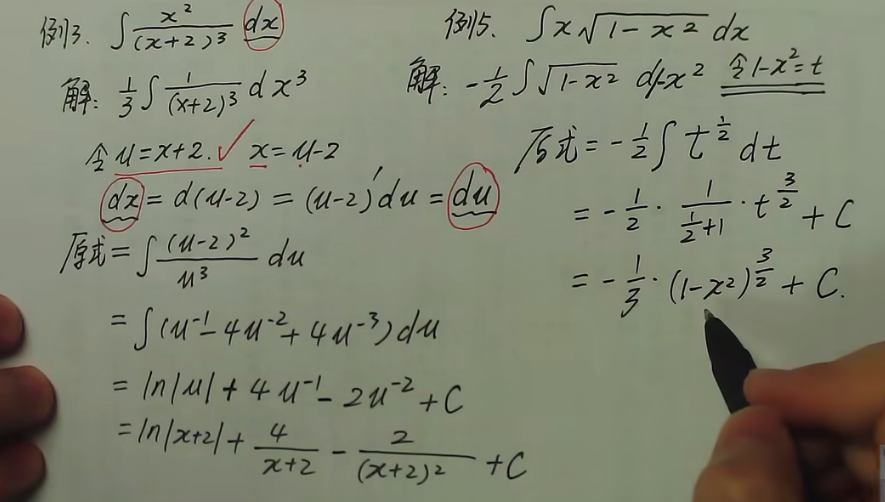 例3. ∫ x²/(x+2)³ dx
解: 1/3 ∫ 1/(x+2)³ dx³
令 u=x+2. ✓ x=u-2
dx = d(u-2) = (u-2)′du = du
原式 = ∫ (u-2)²/u³ du
= ∫(u⁻¹-4u⁻²+4u⁻³)du
= ln|u| + 4u⁻¹ - 2u⁻² + C
= ln|x+2| + 4/(x+2) - 2/(x+2)² + C
例5. ∫x√(1-x²) dx
解: -1/2 ∫√(1-x²) d1-x² 令1-x²=t
原式 = -1/2 ∫ t^(1/2) dt
= -1/2 · 1/(1/2+1) · t^(3/2) + C
= -1/3 · (1-x²)^(3/2) + C.